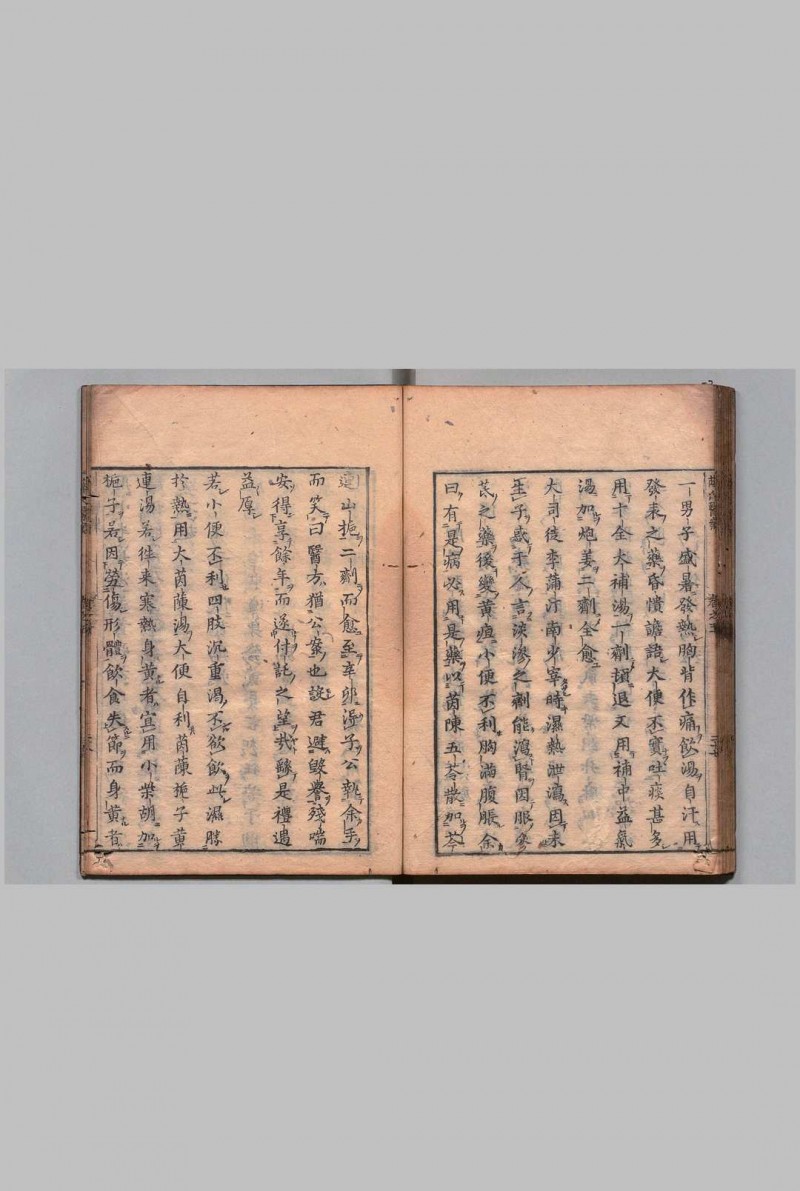 一男子盛暑發熱胸背作痛飮湯自汗用
發表之藥昏憒譫語大便不實吐痰甚多
用十全大補湯一劑頓退又用補中益氣
湯加炮姜二劑全愈
大司徒李蒲汀南少宰時濕熱泄瀉因未
生子惑于人言淡滲之劑能瀉腎因服參
芪之藥後變黄疸小便不利胸滿腹脹余
曰有是病必用是藥以茵陳五苓散加芩
連山梔二劑而愈至辛卯得子公執余手
而笑曰醫方猶公案也設君避毀譽殘喘
安得享餘年而遂付託之望哉繇是禮遇
益厚
若小便不利四肢沉重渴不欲飮此濕勝
於熱用大茵蔯湯大便自利茵蔯梔子黄
連湯若徃来寒熱身黄者宜用小柴胡加
梔子若因勞傷形體飮食失節而身黄者